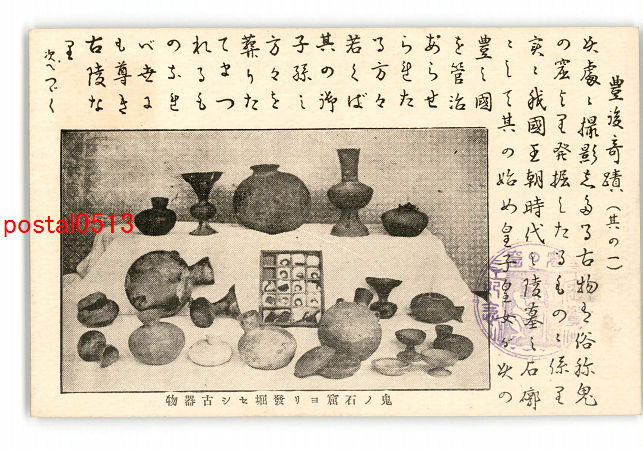 豊後奇蹟(其の一)
此處に撮影したる古物は俗称鬼
の窟より発掘したるものに係り
実に我國王朝時代之陵墓之石廓
にして其の始め皇子皇女が此の
豊之國
を管治
あらせ
られた
る方々
若くば
其の御
子孫之
方々を
葬りた
てまつ
れるも
のなれ
ば世に
も尊き
古陵な
り
次へつづく
鬼ノ石窟ヨリ發堀セシ古器物
postal0513